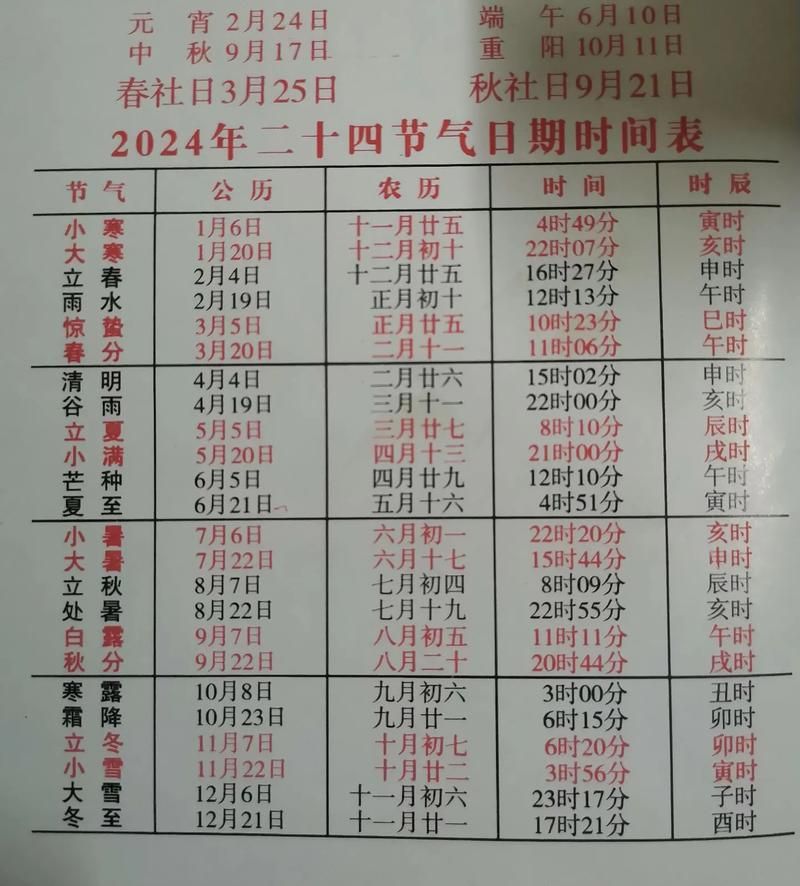 元宵2月24日 端午6月10日
中秋9月17日 重阳10月11日
春社日3月25日 秋社日9月21日
2024年二十四节气日期时间表
节气 公历 农历 时间 时辰
小寒 1月6日 十一月廿五 4时49分 寅时
大寒 1月20日 十二月初十 22时07分 亥时
立春 2月4日 十二月廿五 16时27分 申时
雨水 2月19日 正月初十 12时13分 午时
惊蛰 3月5日 正月廿五 10时23分 巳时
春分 3月20日 二月十一 11时06分 午时
清明 4月4日 二月廿六 15时02分 申时
谷雨 4月19日 三月十一 22时00分 亥时
立夏 5月5日 三月廿七 8时10分 辰时
小满 5月20日 四月十三 21时00分 戌时
芒种 6月5日 四月廿九 12时10分 午时
夏至 6月21日 五月十六 4时51分 寅时
小暑 7月6日 六月初一 22时20分 亥时
大暑 7月22日 六月十七 15时44分 申时
立秋 8月7日 七月初四 8时09分 辰时
处暑 8月22日 七月十九 22时55分 亥时
白露 9月7日 八月初五 11时11分 午时
秋分 9月22日 八月二十 20时44分 戌时
寒露 10月8日 九月初六 3时00分 丑时
霜降 10月23日 九月廿一 6时15分 卯时
立冬 11月7日 十月初七 6时20分 卯时
小雪 11月22日 十月廿二 3时56分 寅时
大雪 12月6日 十一月初六 23时17分 子时
冬至 12月21日 十一月廿一 17时21分 酉时